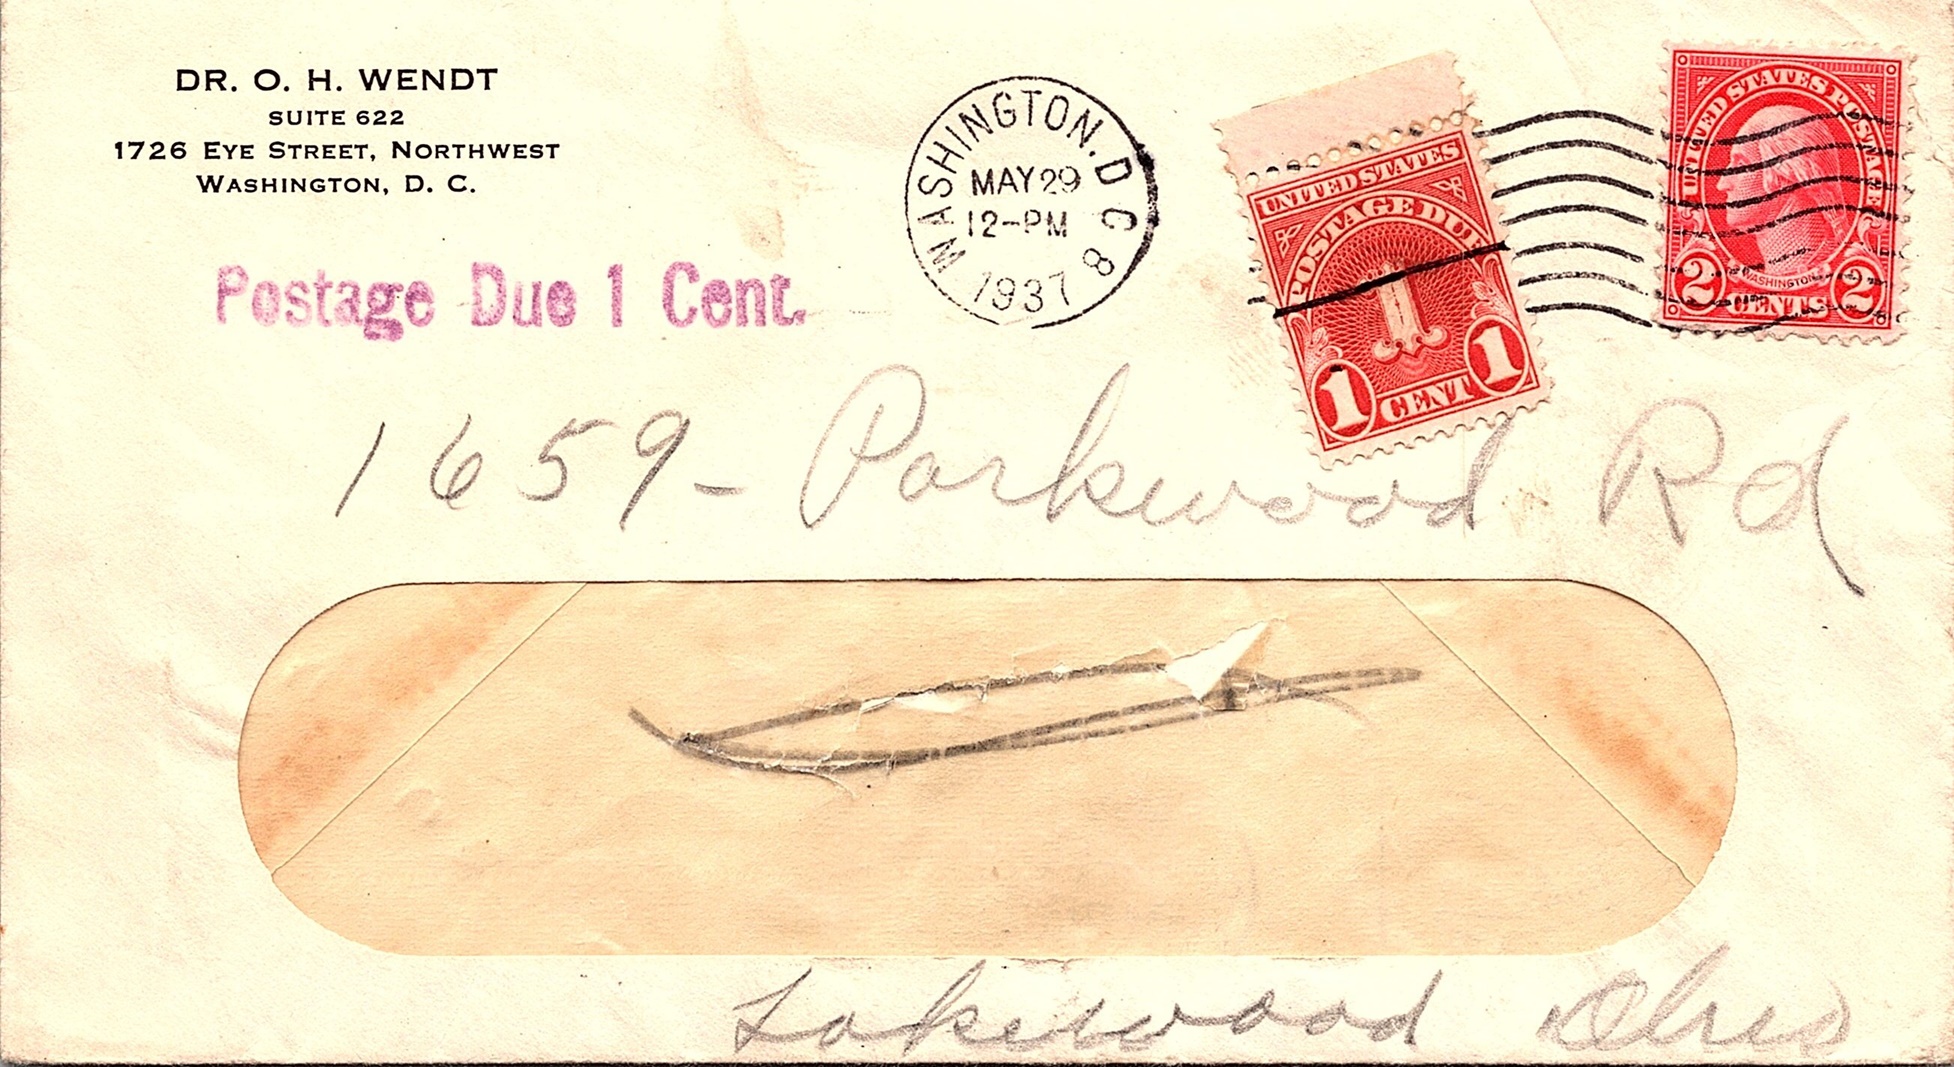 DR. O. H. WENDT
SUITE 622
1726 EYE STREET, NORTHWEST
WASHINGTON, D. C.
WASHINGTON. D C 8
MAY 29
12-PM
1937
UNITED STATES
POSTAGE DUE
1
1 CENT 1
UNITED STATES POSTAGE
WASHINGTON
2 CENTS 2
Postage Due 1 Cent.
1659- Parkwood Rd
Lakewood Ohio